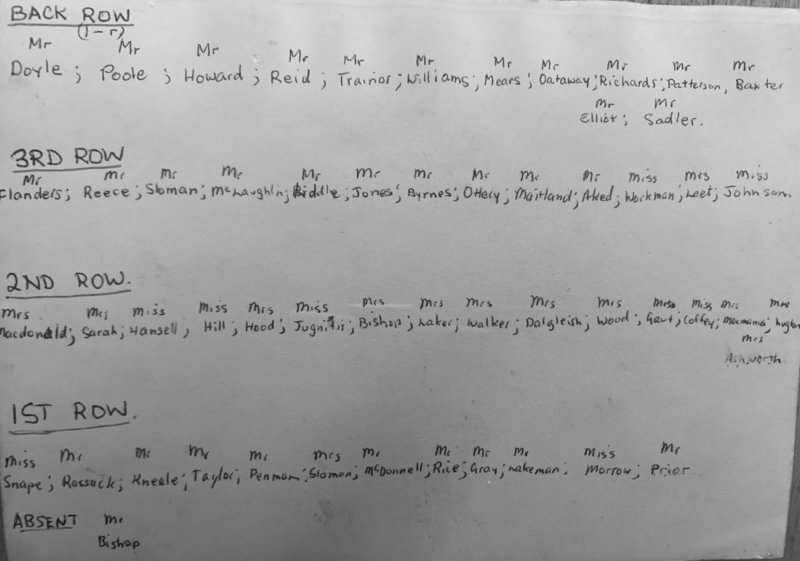 BACK ROW
(l-r)
Mr Mr Mr Mr Mr Mr Mr Mr Mr Mr Mr
Doyle ; Poole ; Howard ; Reid ; Trainor ; Williams ; Mears ; Oataway ; Richards ; Patterson, Baxter
Mr Mr
Elliot ; Sadler.
3RD ROW
Mr Mr Mr Mr Mr Mr Mr Mr Mr Mr Miss Mrs Miss
Flanders ; Reece ; Sloman ; McLaughln ; Biddle ; Jones ; Byrnes ; Ottery ; Maitland ; Aked ; Workman ; Leet ; Johnson
2ND ROW.
Mrs Mrs Miss Miss Mrs Miss Mrs Mrs Mrs Mrs Mrs Miss Miss Mrs Mrs
Macdonald ; Sarah ; Hansell, Hill ; Hood ; Bishop ; Laker ; Walker ; Dalgleish ; Wood ; Gaut ; Coffey ; Macmanus ;
Mrs
Ashworth
1ST ROW.
Miss Mr Mr Mr Mr Mrs Mr Mr Mr Mr Miss Mr
Snape ; Rossock ; Kneale ; Taylor ; Penmam ; Sloman ; McDonnell ; Rice ; Gray ; Lakeman. Morrow ; Prior.
ABSENT Mr
Bishop